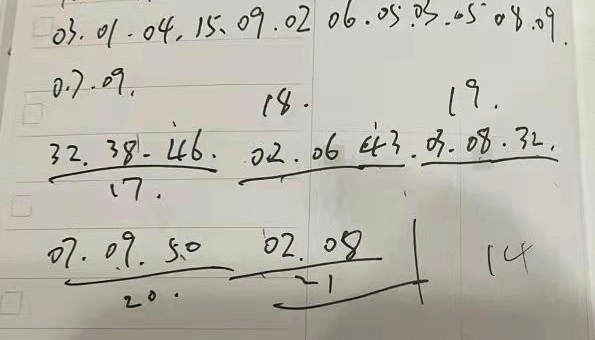 03. 01. 04. 15. 09. 02 06. 05. 05. 05 08. 09.
07. 09.
18. 19.
32. 38. 46. 02. 06 43. 03. 08. 32.
17.
07. 09. 50 02. 08 14
20. 21